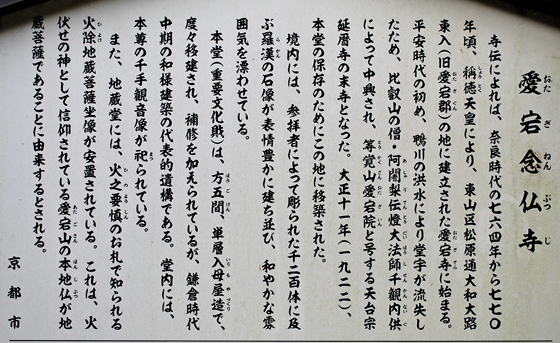 愛宕念仏寺
おたぎねんぶつじ
寺伝によれば、奈良時代の七六四年から七七〇
年頃、稱徳天皇により、東山区松原通大和大路
東入(旧愛宕郡)の地に建立された愛宕寺に始まる。
平安時代の初め、鴨川の洪水により堂宇が流失し
たため、比叡山の僧・阿闍梨伝燈大法師千観内供
によって中興され、等覚山愛宕院と号する天台宗
延暦寺の末寺となった。大正十一年(一九二二)、
本堂の保存のためにこの地に移築された。
境内には、参拝者によって彫られた千二百体に及
ぶ羅漢の石像が表情豊かに建ち並び、和やかな雰
囲気を漂わせている。
本堂(重要文化財)は、方五間、単層入母屋造で、
度々移建され、補修を加えられているが、鎌倉時代
中期の和様建築の代表的遺構である。堂内には、
本尊の千手観音像が祀られている。
また、地蔵堂には、火之要慎のお札で知られる
火除地蔵菩薩坐像が安置されている。これは、火
伏せの神として信仰されている愛宕山の本地仏が地
蔵菩薩であることに由来するとされる。
京都市